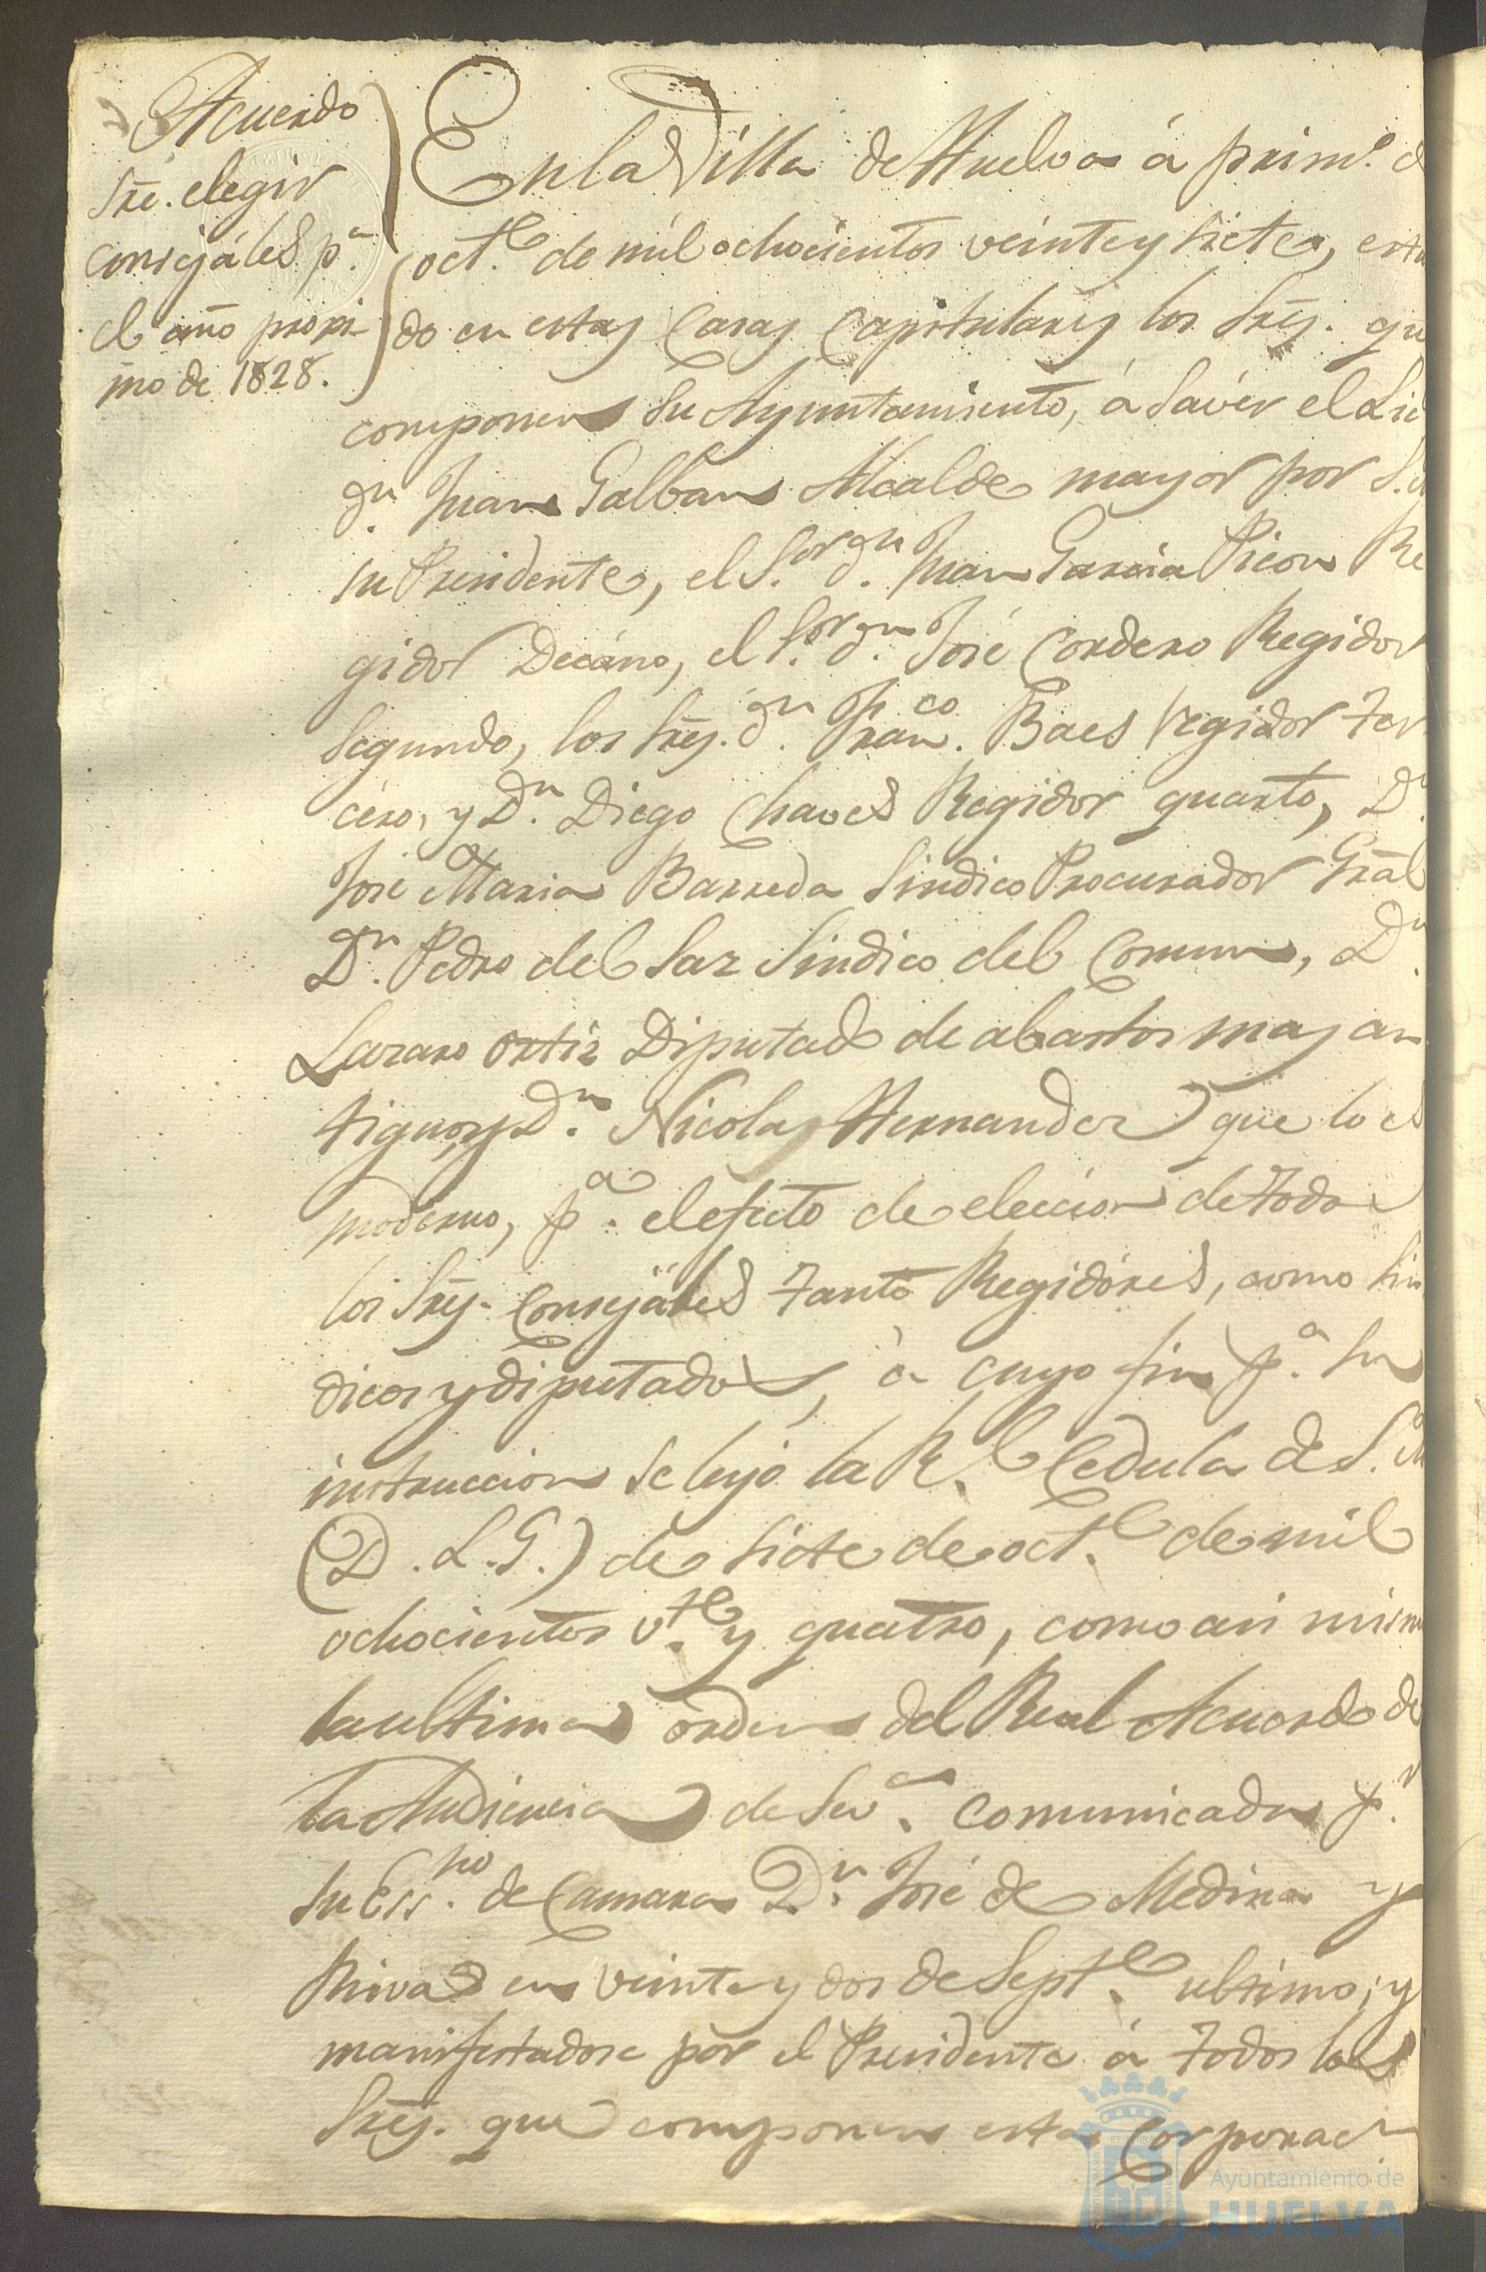 Acuerdo
sre. elegir
consejáles p.a
el año proxi
mo de 1828.
En la Villa de Huelva á prim.o d
oct.e de mil ochocientos veinte y siete, estan
do en estas Casas Capitulares los Sres. qu
componen su Ayuntamiento, á savér el Lic
dn. Juan Galban Alcalde mayor por S.M
su Presidente, el S.or dn. Juan Garcia Picon Re
gidor Decáno, el S.or dn. José Cordero Regidor
segundo, los Sres. dn. Fran.co Baes regidor ter
céro, y Dn. Diego Chaves Regidor quarto, Dn.
José Maria Barreda Sindico Procurador Gral
Dn. Pedro del Saz Sindico del Comun, Dn.
Lazaro Ortiz Diputado de abastos mas an
tiguo, y Dn. Nicolas Hernandez que lo es
moderno, p.a el efecto de eleccion de todos
los Sres. Consejáles tanto Regidóres, como Sin
dicos y diputados, á cuyo fin p.a su
instruccion se leyó la R.l Cedula de S.M
(D.L.G.) de siete de oct.e de mil
ochocientos v.te y quatro, como asi mismo
la ultima orden del Real Acuerdo de
la Audiencia de Sev.a comunicada p.r
su Ess.no de Camara Dn. José de Medina y
Rivas en veinte y dos de Sept.e ultimo; y
manifestadose por el Presidente á todos los
Sres. que componen esta Corporac.n
Ayuntamiento de
HUELVA